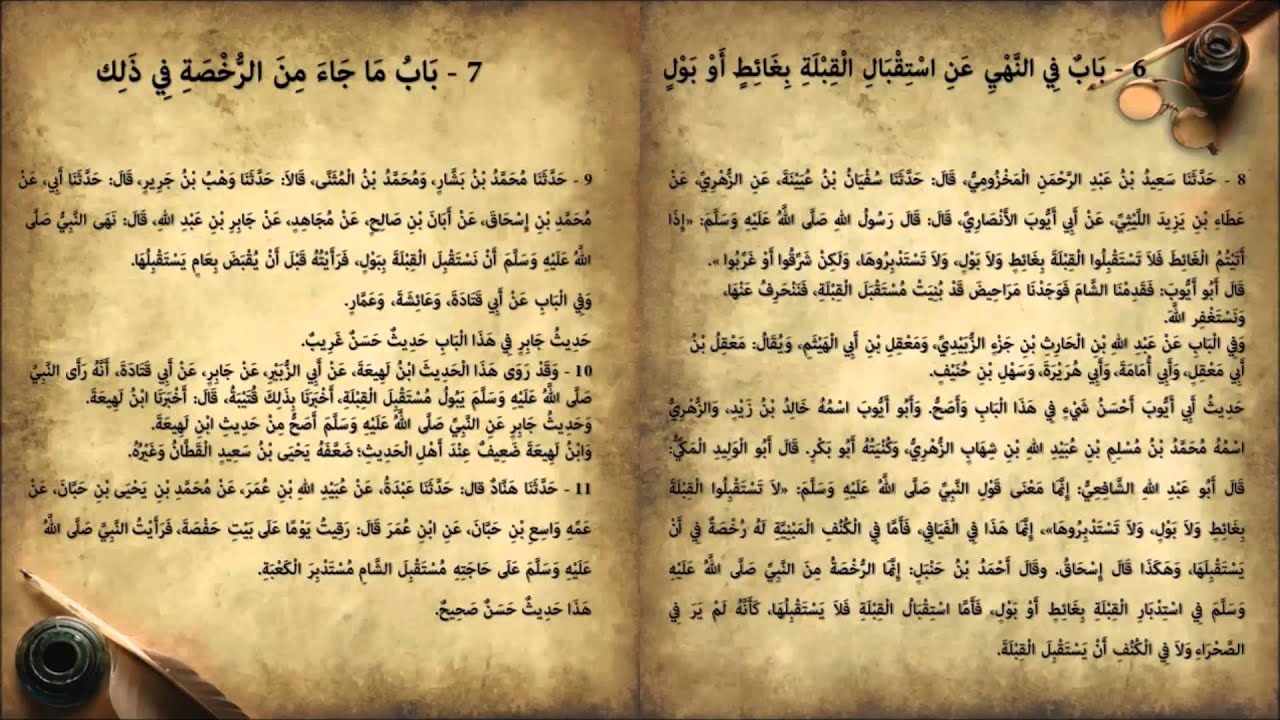 6 - بَابٌ فِي النَّهْيِ عَنِ اسْتِقْبَالِ الْقِبْلَةِ بِغَائِطٍ أَوْ بَوْلٍ
8 - حَدَّثَنَا سَعِيدُ بْنُ عَبْدِ الرَّحْمَنِ الْمَخْزُومِيُّ، قَالَ: حَدَّثَنَا سُفْيَانُ بْنُ عُيَيْنَةَ، عَنِ الزُّهْرِيِّ، عَنْ
عَطَاءِ بْنِ يَزِيدَ اللَّيْثِيِّ، عَنْ أَبِي أَيُّوبَ الأَنْصَارِيِّ، قَالَ: قَالَ رَسُولُ اللهِ صَلَّى اللَّهُ عَلَيْهِ وَسَلَّمَ: «إِذَا
أَتَيْتُمُ الْغَائِطَ فَلاَ تَسْتَقْبِلُوا الْقِبْلَةَ بِغَائِطٍ وَلاَ بَوْلٍ، وَلاَ تَسْتَدْبِرُوهَا، وَلَكِنْ شَرِّقُوا أَوْ غَرِّبُوا ».
قَالَ أَبُو أَيُّوبَ: فَقَدِمْنَا الشَّامَ فَوَجَدْنَا مَرَاحِيضَ قَدْ بُنِيَتْ مُسْتَقْبَلَ الْقِبْلَةِ، فَنَنْحَرِفُ عَنْهَا،
وَنَسْتَغْفِرُ اللَّهَ.
وَفِي الْبَابِ عَنْ عَبْدِ اللهِ بْنِ الْحَارِثِ بْنِ جَزْءٍ الزُّبَيْدِيِّ، وَمَعْقِلِ بْنِ أَبِي الْهَيْثَمِ، وَيُقَالُ: مَعْقِلُ بْنُ
أَبِي مَعْقِلٍ، وَأَبِي أُمَامَةَ، وَأَبِي هُرَيْرَةَ، وَسَهْلِ بْنِ حُنَيْفٍ.
حَدِيثُ أَبِي أَيُّوبَ أَحْسَنُ شَيْءٍ فِي هَذَا الْبَابِ وَأَصَحُّ. وَأَبُو أَيُّوبَ اسْمُهُ خَالِدُ بْنُ زَيْدٍ، وَالزُّهْرِيُّ
اسْمُهُ مُحَمَّدُ بْنُ مُسْلِمِ بْنِ عُبَيْدِ اللهِ بْنِ شِهَابٍ الزُّهْرِيُّ، وَكُنْيَتُهُ أَبُو بَكْرٍ. قَالَ أَبُو الْوَلِيدِ الْمَكِّيُّ:
قَالَ أَبُو عَبْدِ اللهِ الشَّافِعِيُّ: إِنَّمَا مَعْنَى قَوْلِ النَّبِيِّ صَلَّى اللَّهُ عَلَيْهِ وَسَلَّمَ: «لاَ تَسْتَقْبِلُوا الْقِبْلَةَ
بِغَائِطٍ وَلاَ بَوْلٍ، وَلاَ تَسْتَدْبِرُوهَا»، إِنَّمَا هَذَا فِي الْفَيَافِي، فَأَمَّا فِي الْكُنُفِ الْمَبْنِيَّةِ لَهُ رُخْصَةٌ فِي أَنْ
يَسْتَقْبِلَهَا، وَهَكَذَا قَالَ إِسْحَاقُ. وقَالَ أَحْمَدُ بْنُ حَنْبَلٍ: إِنَّمَا الرُّخْصَةُ مِنَ النَّبِيِّ صَلَّى اللَّهُ عَلَيْهِ
وَسَلَّمَ فِي اسْتِدْبَارِ الْقِبْلَةِ بِغَائِطٍ أَوْ بَوْلٍ، فَأَمَّا اسْتِقْبَالُ الْقِبْلَةِ فَلاَ يَسْتَقْبِلُهَا، كَأَنَّهُ لَمْ يَرَ فِي
الصَّحْرَاءِ وَلاَ فِي الْكُنُفِ أَنْ يَسْتَقْبِلَ الْقِبْلَةَ.
7 - بَابُ مَا جَاءَ مِنَ الرُّخْصَةِ فِي ذَلِكَ
9 - حَدَّثَنَا مُحَمَّدُ بْنُ بَشَّارٍ، وَمُحَمَّدُ بْنُ الْمُثَنَّى، قَالاَ: حَدَّثَنَا وَهْبُ بْنُ جَرِيرٍ، قَالَ: حَدَّثَنَا أَبِي، عَنْ
مُحَمَّدِ بْنِ إِسْحَاقَ، عَنْ أَبَانَ بْنِ صَالِحٍ، عَنْ مُجَاهِدٍ، عَنْ جَابِرِ بْنِ عَبْدِ اللهِ، قَالَ: نَهَى النَّبِيُّ صَلَّى
اللَّهُ عَلَيْهِ وَسَلَّمَ أَنْ نَسْتَقْبِلَ الْقِبْلَةَ بِبَوْلٍ، فَرَأَيْتُهُ قَبْلَ أَنْ يُقْبَضَ بِعَامٍ يَسْتَقْبِلُهَا.
وَفِي الْبَابِ عَنْ أَبِي قَتَادَةَ، وَعَائِشَةَ، وَعَمَّارٍ.
حَدِيثُ جَابِرٍ فِي هَذَا الْبَابِ حَدِيثٌ حَسَنٌ غَرِيبٌ.
10 - وَقَدْ رَوَى هَذَا الْحَدِيثَ ابْنُ لَهِيعَةَ، عَنْ أَبِي الزُّبَيْرِ، عَنْ جَابِرٍ، عَنْ أَبِي قَتَادَةَ، أَنَّهُ رَأَى النَّبِيَّ
صَلَّى اللَّهُ عَلَيْهِ وَسَلَّمَ يَبُولُ مُسْتَقْبِلَ الْقِبْلَةِ، أَخْبَرَنَا بِذَلِكَ قُتَيْبَةُ، قَالَ: أَخْبَرَنَا ابْنُ لَهِيعَةَ.
وَحَدِيثُ جَابِرٍ عَنِ النَّبِيِّ صَلَّى اللَّهُ عَلَيْهِ وَسَلَّمَ أَصَحُّ مِنْ حَدِيثِ ابْنِ لَهِيعَةَ.
وَابْنُ لَهِيعَةَ ضَعِيفٌ عِنْدَ أَهْلِ الْحَدِيثِ؛ ضَعَّفَهُ يَحْيَى بْنُ سَعِيدٍ الْقَطَّانُ وَغَيْرُهُ.
11 - حَدَّثَنَا هَنَّادٌ قال: حَدَّثَنَا عَبْدَةُ، عَنْ عُبَيْدِ اللهِ بْنِ عُمَرَ، عَنْ مُحَمَّدِ بْنِ يَحْيَى بْنِ حَبَّانَ، عَنْ
عَمِّهِ وَاسِعِ بْنِ حَبَّانَ، عَنِ ابْنِ عُمَرَ قَالَ: رَقِيتُ يَوْمًا عَلَى بَيْتِ حَفْصَةَ، فَرَأَيْتُ النَّبِيَّ صَلَّى اللَّهُ
عَلَيْهِ وَسَلَّمَ عَلَى حَاجَتِهِ مُسْتَقْبِلَ الشَّامِ مُسْتَدْبِرَ الْكَعْبَةِ.
هَذَا حَدِيثٌ حَسَنٌ صَحِيحٌ.